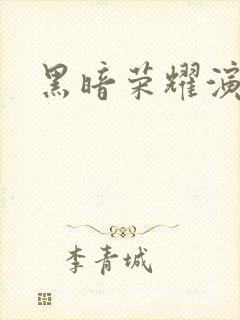 黑暗荣耀演
李青城